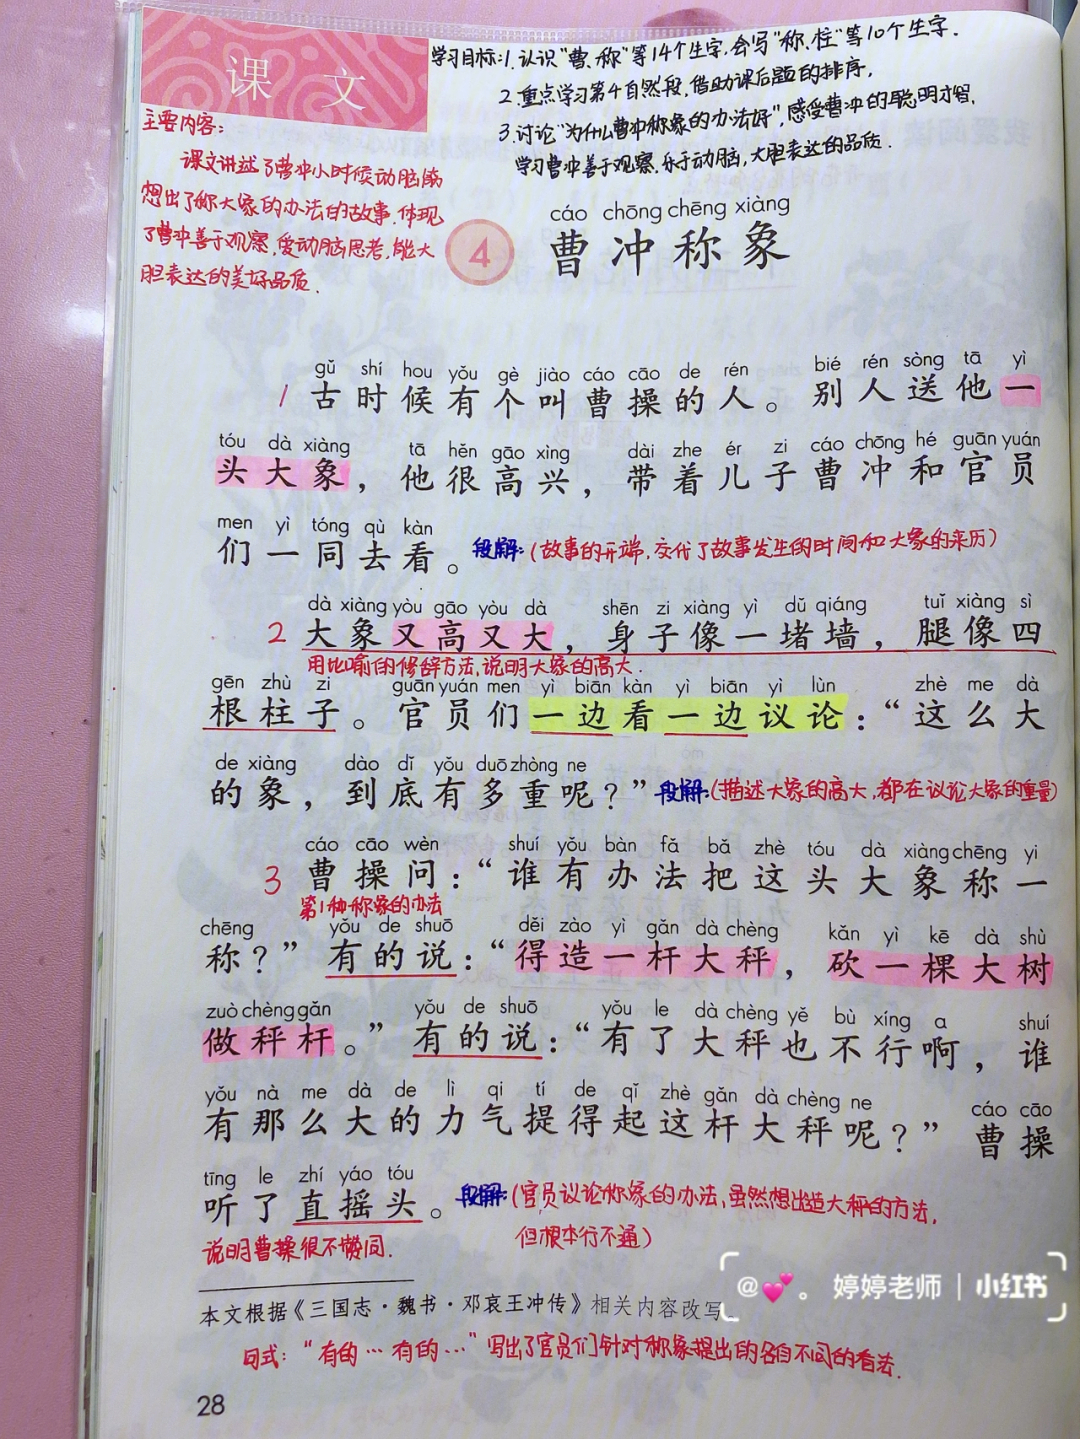 课文
学习目标:1.认识“曹、称”等14个生字,会写“称、柱”等10个生字.
2.重点学习第4自然段,借助课后题的排序,
3.讨论“为什么曹冲称象的办法好”,感受曹冲的聪明才智,
学习曹冲善于观察、乐于动脑,大胆表达的品质.
主要内容:
课文讲述了曹冲小时候动脑筋
想出了称大象的办法的故事.体现
了曹冲善于观察,爱动脑思考,能大
胆表达的美好品质.
cáo chōng chēng xiàng
4 曹冲称象
gǔ shí hou yǒu gè jiào cáo cāo de rén bié rén sòng tā yì
1 古时候有个叫曹操的人。别人送他一
tóu dà xiàng tā hěn gāo xìng dài zhe ér zi cáo chōng hé guān yuán
头大象，他很高兴，带着儿子曹冲和官员
men yì tóng qù kàn
们一同去看。 段解:(故事的开端,交代了故事发生的时间和大象的来历)
dà xiàng yòu gāo yòu dà shēn zi xiàng yì dǔ qiáng tuǐ xiàng sì
2 大象又高又大，身子像一堵墙，腿像四
用比喻的修辞方法,说明大象的高大.
gēn zhù zi guān yuán men yì biān kàn yì biān yì lùn zhè me dà
根柱子。官员们一边看一边议论：“这么大
de xiàng dào dǐ yǒu duō zhòng ne
的象，到底有多重呢？” 段解:(描述大象的高大,都在议论大象的重量)
cáo cāo wèn shuí yǒu bàn fǎ bǎ zhè tóu dà xiàng chēng yi
3 曹操问：“谁有办法把这头大象称一
第1种称象的办法
chēng yǒu de shuō děi zào yì gǎn dà chèng kǎn yì kē dà shù
称？”有的说：“得造一杆大秤，砍一棵大树
zuò chèng gǎn yǒu de shuō yǒu le dà chèng yě bù xíng a shuí
做秤杆。”有的说：“有了大秤也不行啊，谁
yǒu nà me dà de lì qi tí de qǐ zhè gǎn dà chèng ne cáo cāo
有那么大的力气提得起这杆大秤呢？”曹操
tīng le zhí yáo tóu
听了直摇头。 段解:(官员议论称象的办法,虽然想出造大秤的方法,
但根本行不通)
说明曹操很不赞同.
本文根据《三国志·魏书·邓哀王冲传》相关内容改写
句式:“有的…有的…”写出了官员们针对称象提出的各自不同的看法.
28
@💕。婷婷老师｜小红书